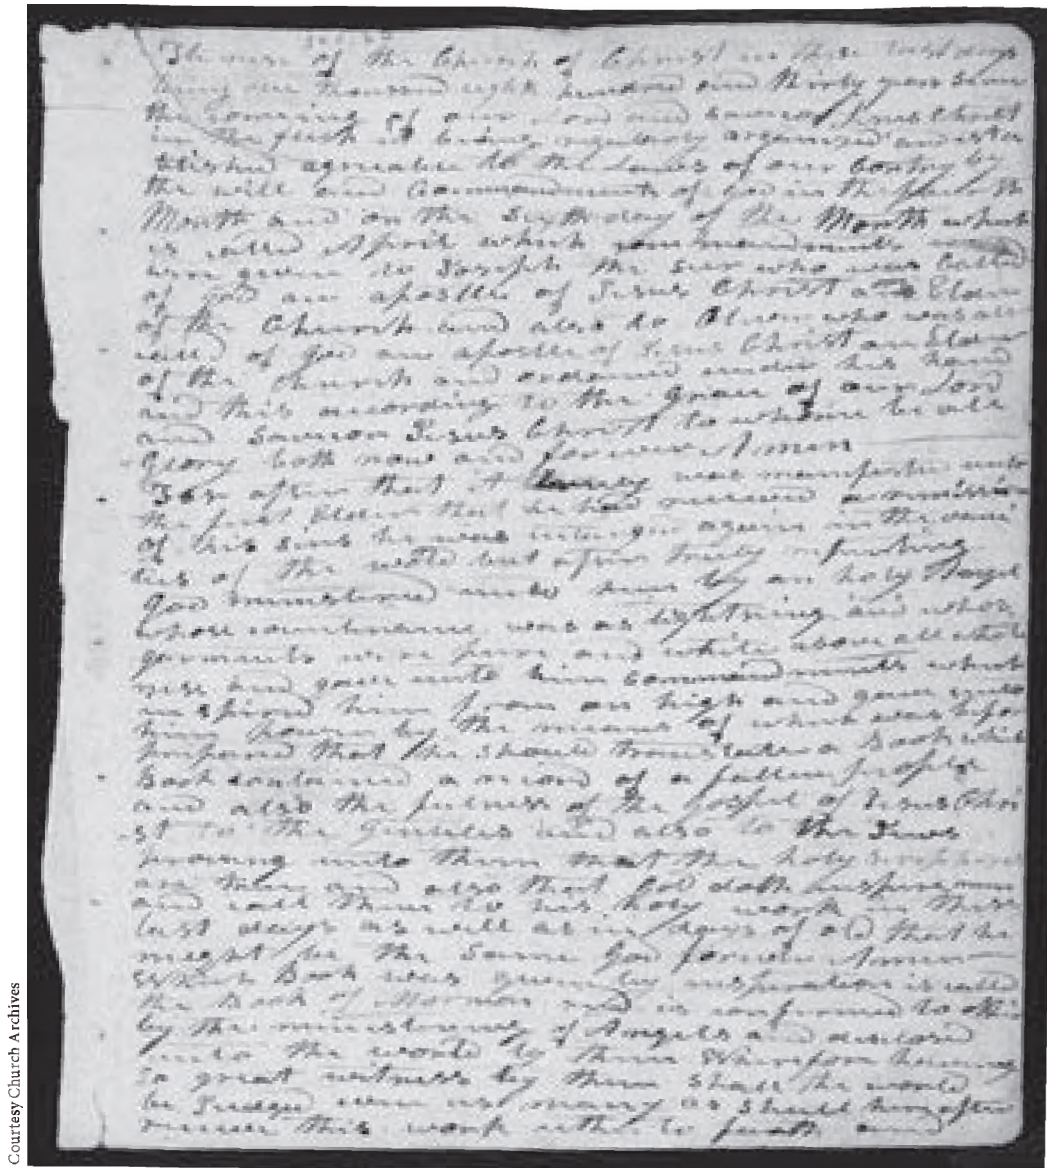 The rise of the Church of Christ in these last days
being one thousand eight hundred and thirty years since
the coming of our Lord and saviour Jesus Christ
in the flesh it being regularly organized and esta
blished agreeable to the laws of our Contry by
the will and Commandments of god in the
Month and on the sixth day of the Month which
is called April which commandments
were given to Joseph the seer who was Called
of God an apostle of Jesus Christ an Elder
of the Church and also to Oliver who was also
called of god an apostle of Jesus Christ an Elder
of the Church and ordained under his hand
and this according to the grace of our Lord
and saviour Jesus Christ to whom be all
Glory both now and forever Amen
For after that it was manifested unto
the first Elder that he had received a remission
of his sins he was intangled again in the vani
ties of the world but after truly repenting
God ministered unto him by an holy Angel
whose countenance was as lightning and whose
garments were pure and white above all white
ness and gave unto him commandments which
inspired him from on high and gave unto
him power by the means of which was before
prepared that he should translate a Book which
Book contained a record of a fallen people
and also the fulness of the gospel of Jesus Chri
st to the Gentiles and also to the Jews
proving unto them that the holy scriptures
are true and also that God doth inspire men
and call them to his holy work in these
last days as well as in days of old that he
might be the same God forever Amen
Which Book was given by inspiration is called
the Book of Mormon and is confirmed to others
by the ministering of Angels and declared
unto the world by them Wherefore having
so great witness by them shall the world
be Judged even as many as shall hereafter
receive this work either to faith and
Courtesy Church Archives